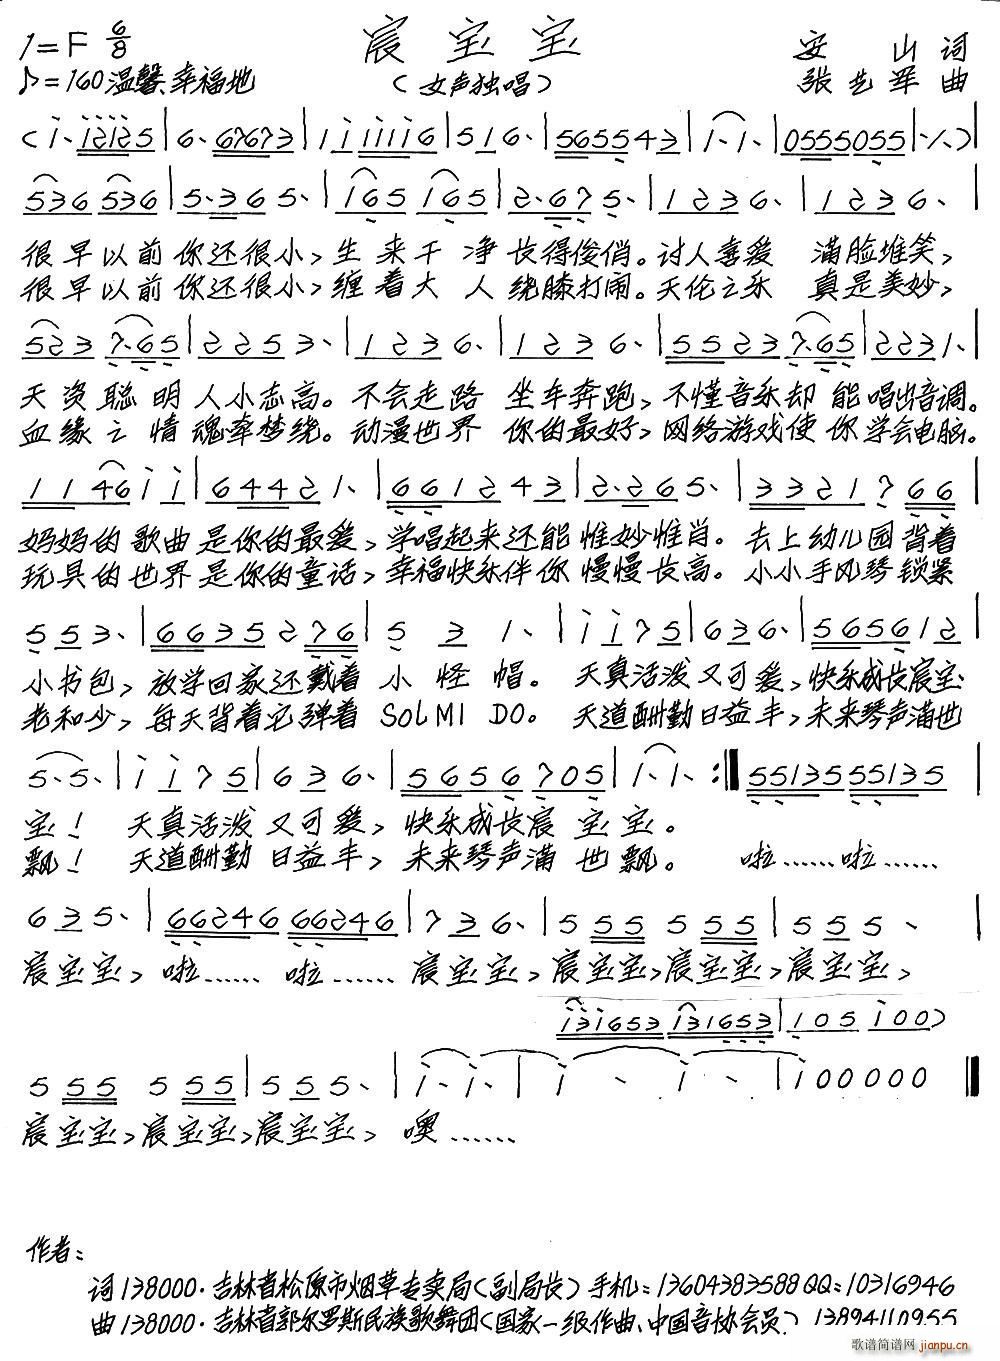 宸宝宝
1=F 6/8
安山 词
♪=160 温馨、幸福地
(女声独唱)
张艺军 曲
很早以前你还很小,生来干净长得俊俏。讨人喜爱 满脸堆笑,
很早以前你还很小,缠着大人绕膝打闹。天伦之乐 真是美妙,
天资聪明人小志高。不会走路 坐车奔跑,不懂音乐却能唱出音调。
血缘之情魂牵梦绕。动漫世界 你的最好,网络游戏使你学会电脑。
妈妈的歌曲是你的最爱,学唱起来还能惟妙惟肖。去上幼儿园背着
玩具的世界是你的童话,幸福快乐伴你慢慢长高。小小手风琴锁紧
小书包,放学回家还戴着小怪帽。天真活泼又可爱,快乐成长宸宝
老和少,每天背着它弹着SOLMI DO。天道酬勤日益丰,未来琴声满世
宝!天真活泼又可爱,快乐成长宸宝宝。
飘!天道酬勤日益丰,未来琴声满世飘。啦……啦……
宸宝宝,啦……啦……宸宝宝,宸宝宝,宸宝宝,宸宝宝,
宸宝宝,宸宝宝,宸宝宝,噢……
作者:
词138000·吉林省松原市烟草专卖局(副局长)手机:13604383588QQ:10316946
曲138000·吉林省郭尔罗斯民族歌舞团(国家一级作曲、中国音协会员)
歌谱简谱网 jianpu.cn